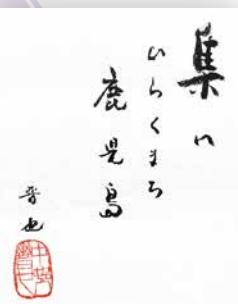 集い
ひらくまち
鹿児島
晋也